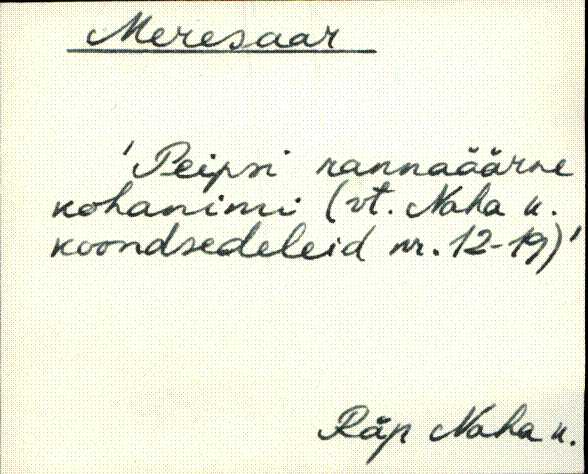 Meresaar
'Peipsi rannaäärne
kohanimi (vt. Naha k.
koondsedeleid nr. 12-19)'
Räp Naha k.